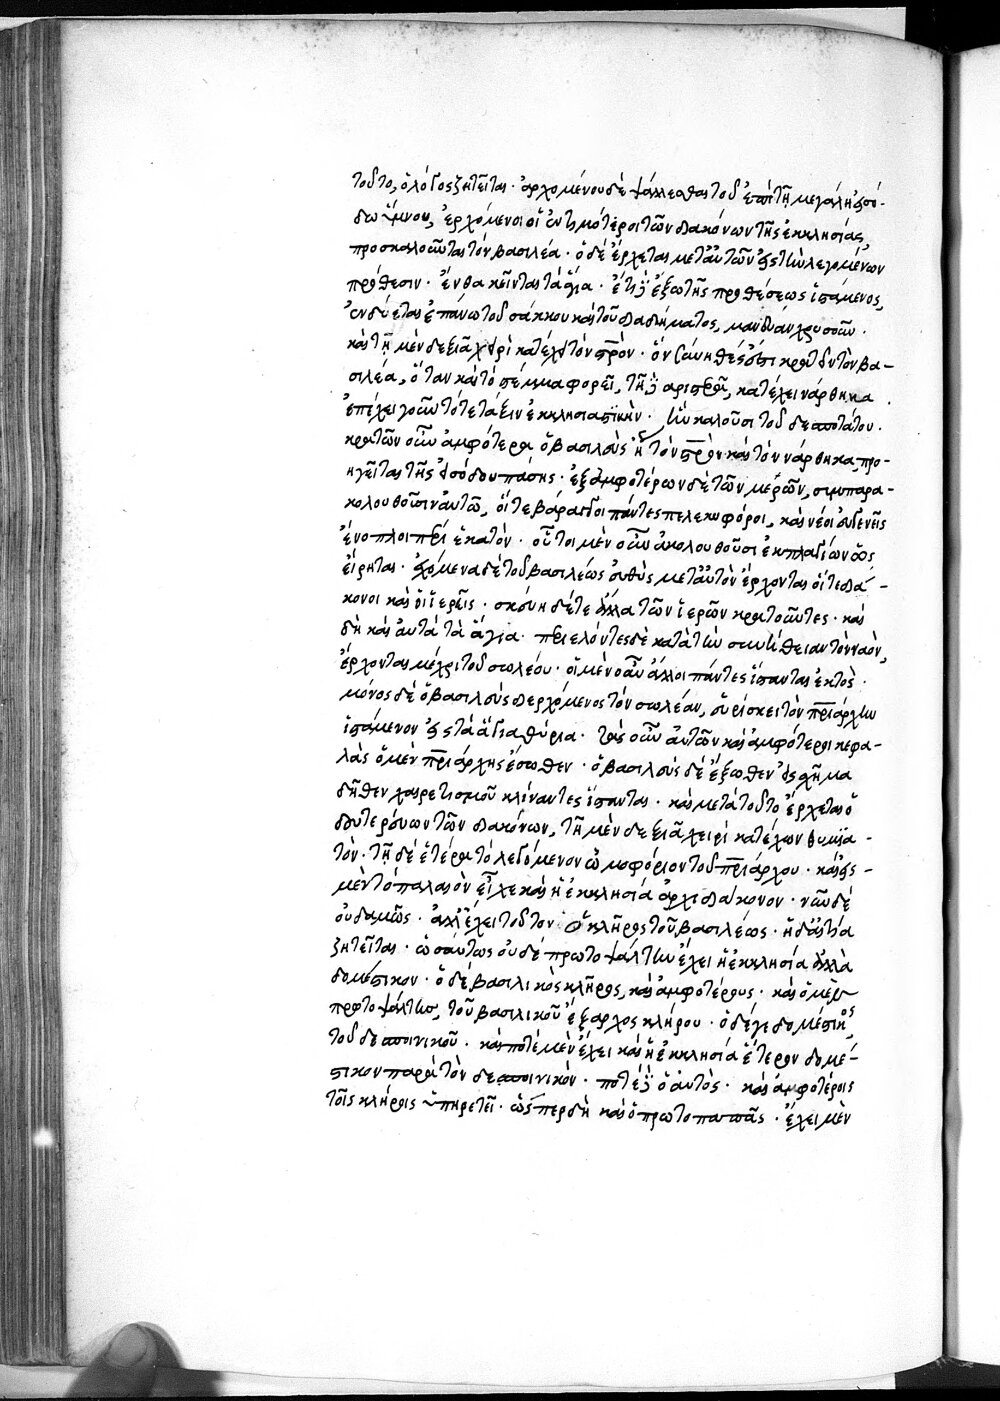 τοῦτο, ὁ λόγος ζητεῖται· ἀρχομένου δὲ ψάλλεσθαι τοῦ ἐπὶ τῇ μεγάλῃ εἰσό-
δῳ ὕμνου, ἐρχόμενοι οἱ ἐντιμότεροι τῶν διακόνων τῆς ἐκκλησίας,
προσκαλοῦνται τὸν βασιλέα· ὁ δὲ ἔρχεται μετ' αὐτῶν εἰς τὴν λεγομένην
πρόθεσιν· ἔνθα κεῖνται τὰ ἅγια· ἔτι δὲ ἔξω τῆς προθέσεως ἱστάμενος,
ἐνδύεται ἐπάνω τοῦ σάκκου καὶ τοῦ διαδήματος, μανδύαν χρυσοῦν·
καὶ τῇ μὲν δεξιᾷ χειρὶ κατέχει τὸν σταυρόν· ὃν σύνηθές ἐστι κρατεῖν τὸν βα-
σιλέα, ὅταν καὶ τὸ στέμμα φορεῖ, τῇ δὲ ἀριστερᾷ, κατέχει νάρθηκα.
ἐπέχει γοῦν τότε τάξιν ἐκκλησιαστικήν· ἣν καλοῦσι τοῦ δεποτάτου.
κρατῶν οὖν ἀμφότερα ὁ βασιλεὺς ἤγουν τὸν σταυρὸν καὶ τὸν νάρθηκα, προ-
ηγεῖται τῆς εἰσόδου πάσης· ἐξ ἀμφοτέρων δὲ τῶν μερῶν, συμπαρα-
κολουθοῦσιν αὐτῷ, οἵ τε βάραγγοι πάντες πελεκυφόροι, καὶ νέοι εὐγενεῖς
ἔνοπλοι περὶ ἑκατόν· οὗτοι μὲν οὖν ἀκολουθοῦσι ἐκ πλαγίων ὡς
εἴρηται· ἐχόμενα δὲ τοῦ βασιλέως εὐθὺς μετ' αὐτὸν ἔρχονται οἵ τε διά-
κονοι καὶ οἱ ἱερεῖς· σκεύη δέ τε ἄλλα τῶν ἱερῶν κρατοῦντες· καὶ
δὴ καὶ αὐτὰ τὰ ἅγια· περιελόντες δὲ κατὰ τὴν συνήθειαν τὸν ναὸν,
ἔρχονται μέχρι τοῦ σωλέου· οἱ μὲν οὖν ἄλλοι πάντες ἵστανται ἐκτός·
μόνος δὲ ὁ βασιλεὺς διερχόμενος τὸν σωλέαν, εὑρίσκει τὸν πατριάρχην
ἱστάμενον εἰς τὰ ἅγια θύρια· τὰς οὖν αὐτῶν καὶ ἀμφότεροι κεφα-
λὰς ὁ μὲν πατριάρχης ἔσωθεν· ὁ βασιλεὺς δὲ ἔξωθεν εἰς σχῆμα
δῆθεν χαιρετισμοῦ κλίναντες ἵστανται· καὶ μετὰ τοῦτο ἔρχεται ὁ
δευτερεύων τῶν διακόνων, τῇ μὲν δεξιᾷ χειρὶ κατέχων θυμια-
τόν· τῇ δὲ ἑτέρᾳ τὸ λεγόμενον ὠμοφόριον τοῦ πατριάρχου· καὶ εἰς-
μὲν τὸ παλαιὸν εἶχε καὶ ἡ ἐκκλησία ἀρχιδιάκονον· νῦν δὲ
οὐδαμῶς· ἀλλ' ἔχει τοῦτον ὁ κλῆρος τοῦ βασιλέως· ἡ δ' αἰτία
ζητεῖται· ὡσαύτως οὐδὲ πρωτοψάλτην ἔχει ἡ ἐκκλησία ἀλλὰ
δομέστικον· ὁ δὲ βασιλικὸς κλῆρος, καὶ ἀμφοτέρους· καὶ ὁ μὲν
πρωτοψάλτης, τοῦ βασιλικοῦ ἔξαρχος κλήρου· ὁ δέ γε δομέστικος,
τοῦ δεσποινικοῦ· καὶ ποτὲ μὲν ἔχει καὶ ἡ ἐκκλησία ἕτερον δομέ-
στικον παρὰ τὸν δεσποινικόν· ποτὲ δὲ ὁ αὐτός· καὶ ἀμφοτέροις
τοῖς κλήροις ὑπηρετεῖ· ὥσπερ δὴ καὶ ὁ πρωτοπαπᾶς· ἔχει μὲν